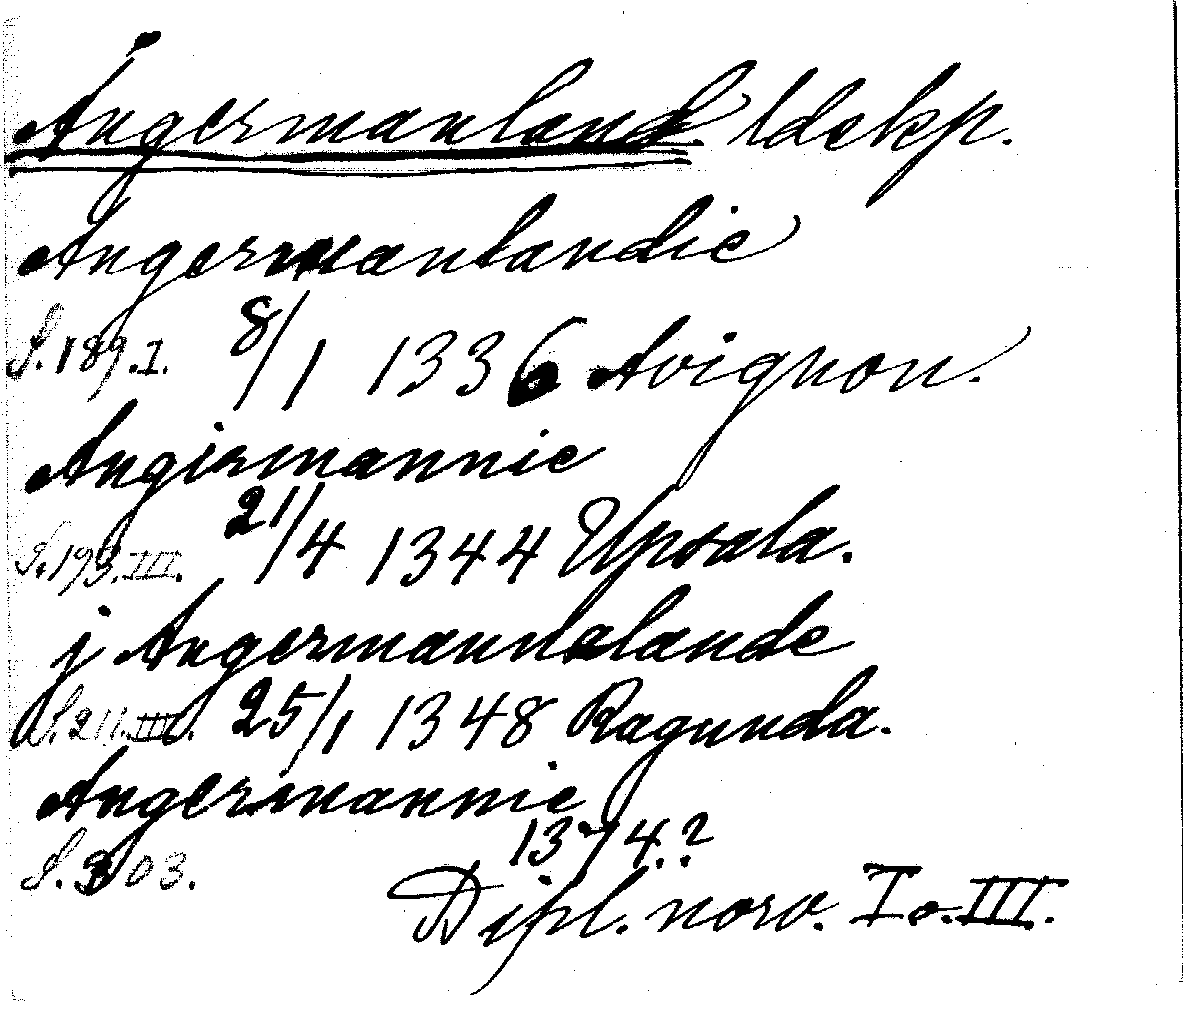 Ångermanland. ldskp.
Angermanlandie
S. 189. I. 8/1 1336 Avignon.
Angirmannie
S. 193. III. 21/4 1344 Upsala.
j Angermannalande
S. 211. III. 25/1 1348 Ragunda.
Angermannie
S. 303. 1374.?
Dipl. norv. I o. III.